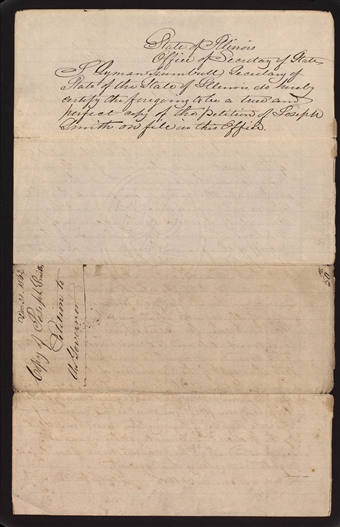 State of Illinois
Office of Secretary of State
I Lyman Trumbull Secretary of
State of the State of Illinois do hereby
certify the foregoing to be a true and
perfect copy of the Petition of Joseph
Smith on file in this Office.
Dec. 31. 1842
Copy of Joseph Smith
Petition to
the Governor